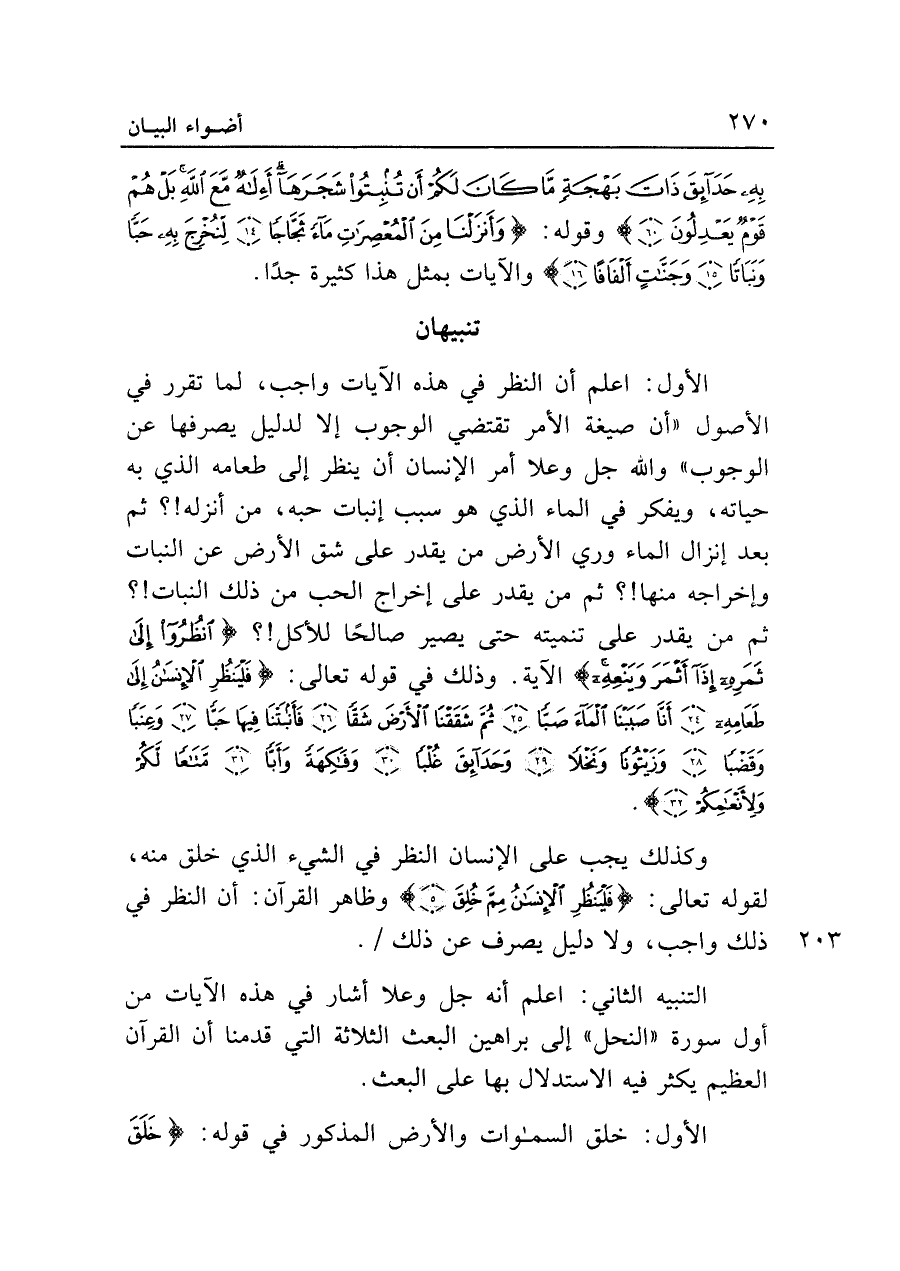 ٢٧٠ أضواء البيان
بِهِۦ حَدَآئِقَ ذَاتَ بَهْجَةٍ مَّا كَانَ لَكُمْ أَن تُنۢبِتُوا۟ شَجَرَهَآ ۗ أَءِلَٰهٌ مَّعَ ٱللَّهِ ۚ بَلْ هُمْ
قَوْمٌ يَعْدِلُونَ ۝٦٠﴾ وقوله: ﴿وَأَنزَلْنَا مِنَ ٱلْمُعْصِرَٰتِ مَآءً ثَجَّاجًا ۝١٤ لِّنُخْرِجَ بِهِۦ حَبًّا
وَنَبَاتًا ۝١٥ وَجَنَّٰتٍ أَلْفَافًا ۝١٦﴾ والآيات بمثل هذا كثيرة جدًا.
تنبيهان
الأول: اعلم أن النظر في هذه الآيات واجب، لما تقرر في
الأصول «أن صيغة الأمر تقتضي الوجوب إلا لدليل يصرفها عن
الوجوب» والله جل وعلا أمر الإنسان أن ينظر إلى طعامه الذي به
حياته، ويفكر في الماء الذي هو سبب إنبات حبه، من أنزله!؟ ثم
بعد إنزال الماء وري الأرض من يقدر على شق الأرض عن النبات
وإخراجه منها!؟ ثم من يقدر على إخراج الحب من ذلك النبات!؟
ثم من يقدر على تنميته حتى يصير صالحًا للأكل!؟ ﴿ٱنظُرُوٓا۟ إِلَىٰ
ثَمَرِهِۦٓ إِذَآ أَثْمَرَ وَيَنْعِهِۦٓ ۚ﴾ الآية. وذلك في قوله تعالى: ﴿فَلْيَنظُرِ ٱلْإِنسَٰنُ إِلَىٰ
طَعَامِهِۦٓ ۝٢٤ أَنَّا صَبَبْنَا ٱلْمَآءَ صَبًّا ۝٢٥ ثُمَّ شَقَقْنَا ٱلْأَرْضَ شَقًّا ۝٢٦ فَأَنۢبَتْنَا فِيهَا حَبًّا ۝٢٧ وَعِنَبًا
وَقَضْبًا ۝٢٨ وَزَيْتُونًا وَنَخْلًا ۝٢٩ وَحَدَآئِقَ غُلْبًا ۝٣٠ وَفَٰكِهَةً وَأَبًّا ۝٣١ مَّتَٰعًا لَّكُمْ
وَلِأَنْعَٰمِكُمْ ۝٣٢﴾.
وكذلك يجب على الإنسان النظر في الشيء الذي خلق منه،
لقوله تعالى: ﴿فَلْيَنظُرِ ٱلْإِنسَٰنُ مِمَّ خُلِقَ ۝٥﴾ وظاهر القرآن: أن النظر في
٢٠٣ ذلك واجب، ولا دليل يصرف عن ذلك / .
التنبيه الثاني: اعلم أنه جل وعلا أشار في هذه الآيات من
أول سورة «النحل» إلى براهين البعث الثلاثة التي قدمنا أن القرآن
العظيم يكثر فيه الاستدلال بها على البعث.
الأول: خلق السمٰوات والأرض المذكور في قوله: ﴿خَلَقَ